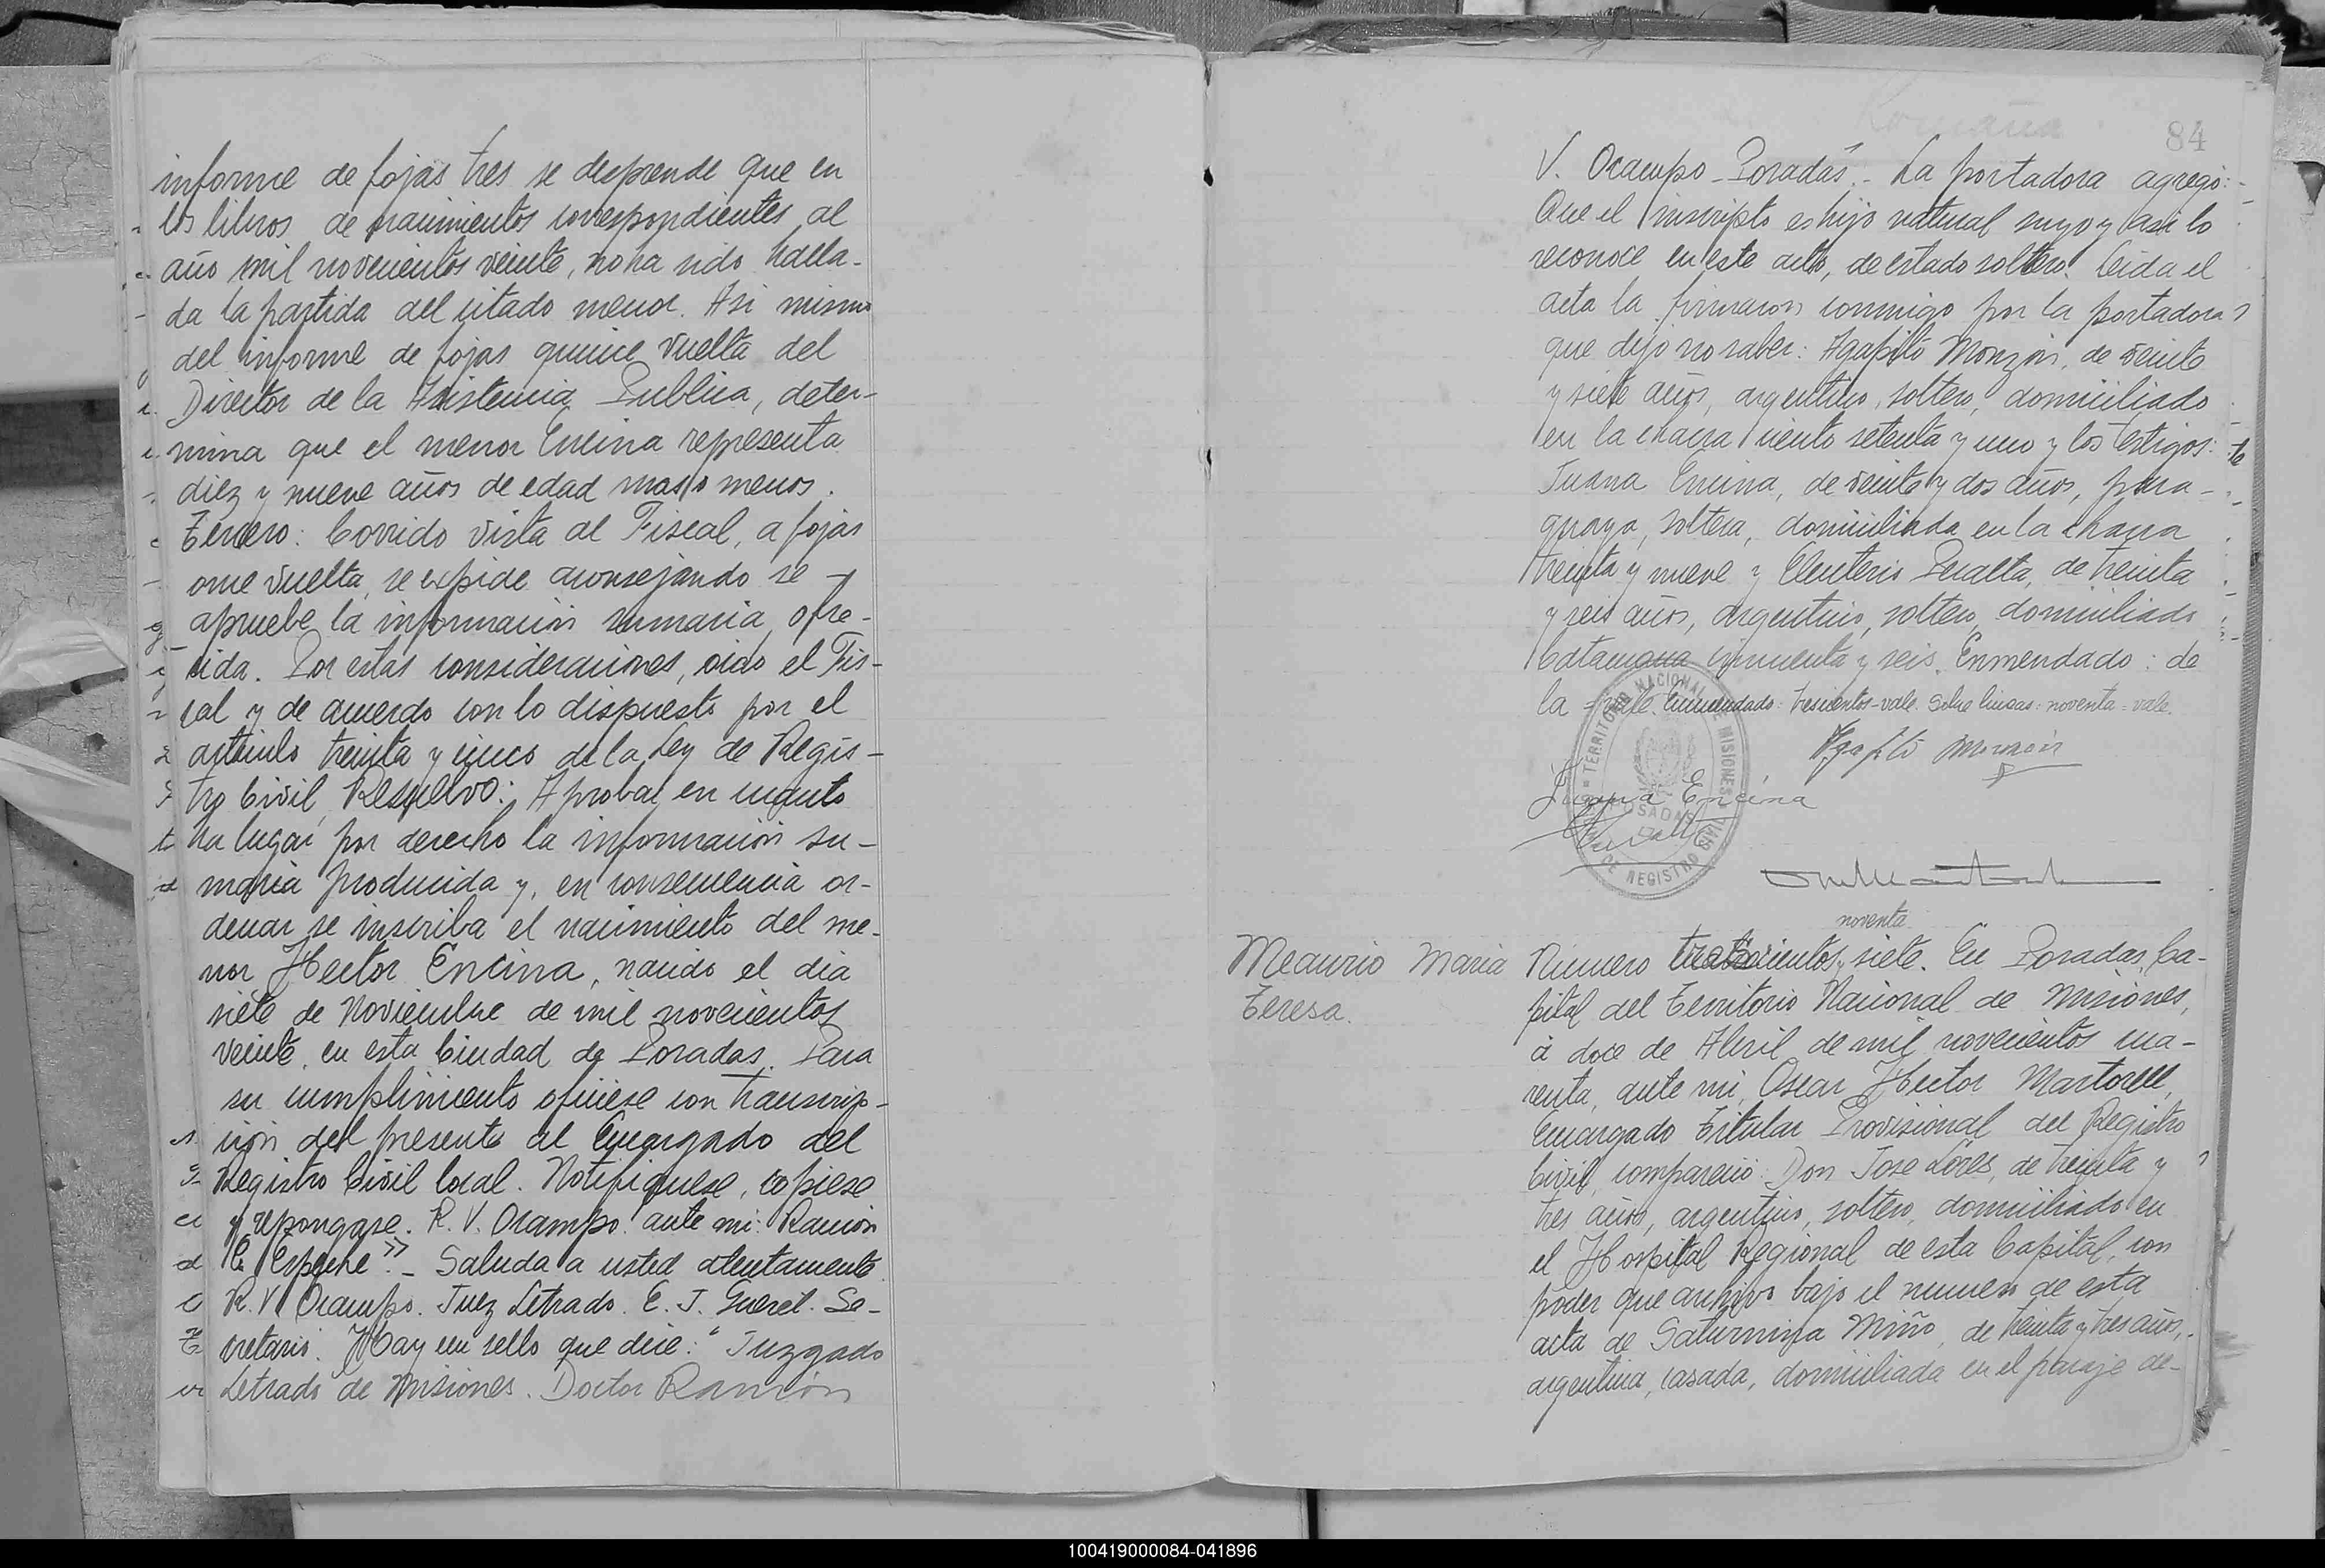 informe de fojas tres se desprende que en
los libros de nacimientos correspondientes al
año mil novecientos veinte, no ha sido halla-
da la partida del citado menor. Asi mismo
del informe de fojas quince vuelta del
Director de la Asistencia Publica, deter-
mina que el menor Encina representa
diez y nueve años de edad mas o menos.
Tercero: Corrido vista al Fiscal, a fojas
once vuelta, se expide aconsejando se
apruebe la información sumaria ofre-
cida. Por estas consideraciones, oido el Fis-
cal y de acuerdo con lo dispuesto por el
articulo treinta y cinco de la Ley de Regis-
tro Civil, Resuelvo: Aprobar en cuanto
ha lugar por derecho la información su-
maria producida y, en consecuencia or-
denar se inscriba el nacimiento del me-
nor Hector Encina, nacido el dia
siete de Noviembre de mil novecientos
veinte, en esta Ciudad de Posadas. Para
su cumplimiento oficiese con transcrip-
ción del presente al Encargado del
Registro Civil local. Notifiquese, copiese
y repongase. R. V. Ocampo. ante mi: Ramón
C. Espeche". - Saluda a usted atentamente
R. V. Ocampo. Juez Letrado. E. J. Guerel. Se-
cretario. Hay un sello que dice: "Juzgado
Letrado de Misiones. Doctor Ramón
84
V. Ocampo - Posadas". - La portadora agregó: -
Que el inscripto es hijo natural suyo y asi lo
reconoce en este acto, de estado soltero. Leida el
acta la firmaron conmigo por la portadora
que dijo no saber: Agapito Monzón, de veinte
y siete años, argentino, soltero, domiciliado
en la chacra ciento setenta y uno y los testigos:
Juana Encina, de veinte y dos años, para-
guaya, soltera, domiciliada en la chacra
treinta y nueve y Eleuterio Peralta, de treinta
y seis años, argentino, soltero, domiciliado
Catamarca cincuenta y seis. Enmendado: de
la - vale. Enmendado: trescientos-vale. Sobre lineas: noventa = vale.
Agapito Monzón
Juana Encina
TERRITORIO NACIONAL DE MISIONES
POSADAS
REGISTRO CIVIL
noventa
Meaurio Maria
Teresa.
Número trescientos siete. En Posadas, Ca-
pital del Territorio Nacional de Misiones,
á doce de Abril de mil novecientos cua-
renta, ante mi, Oscar Hector Martorell,
Encargado Titular Provisional del Registro
Civil, compareció: Don Jose de treinta y
tres años, argentino, soltero, domiciliado en
el Hospital Regional de esta Capital, con
poder que archivo bajo el numero de esta
acta de Saturnina Miño, de treinta y tres años,
argentina, casada, domiciliada en el paraje de-
100419000084-041896